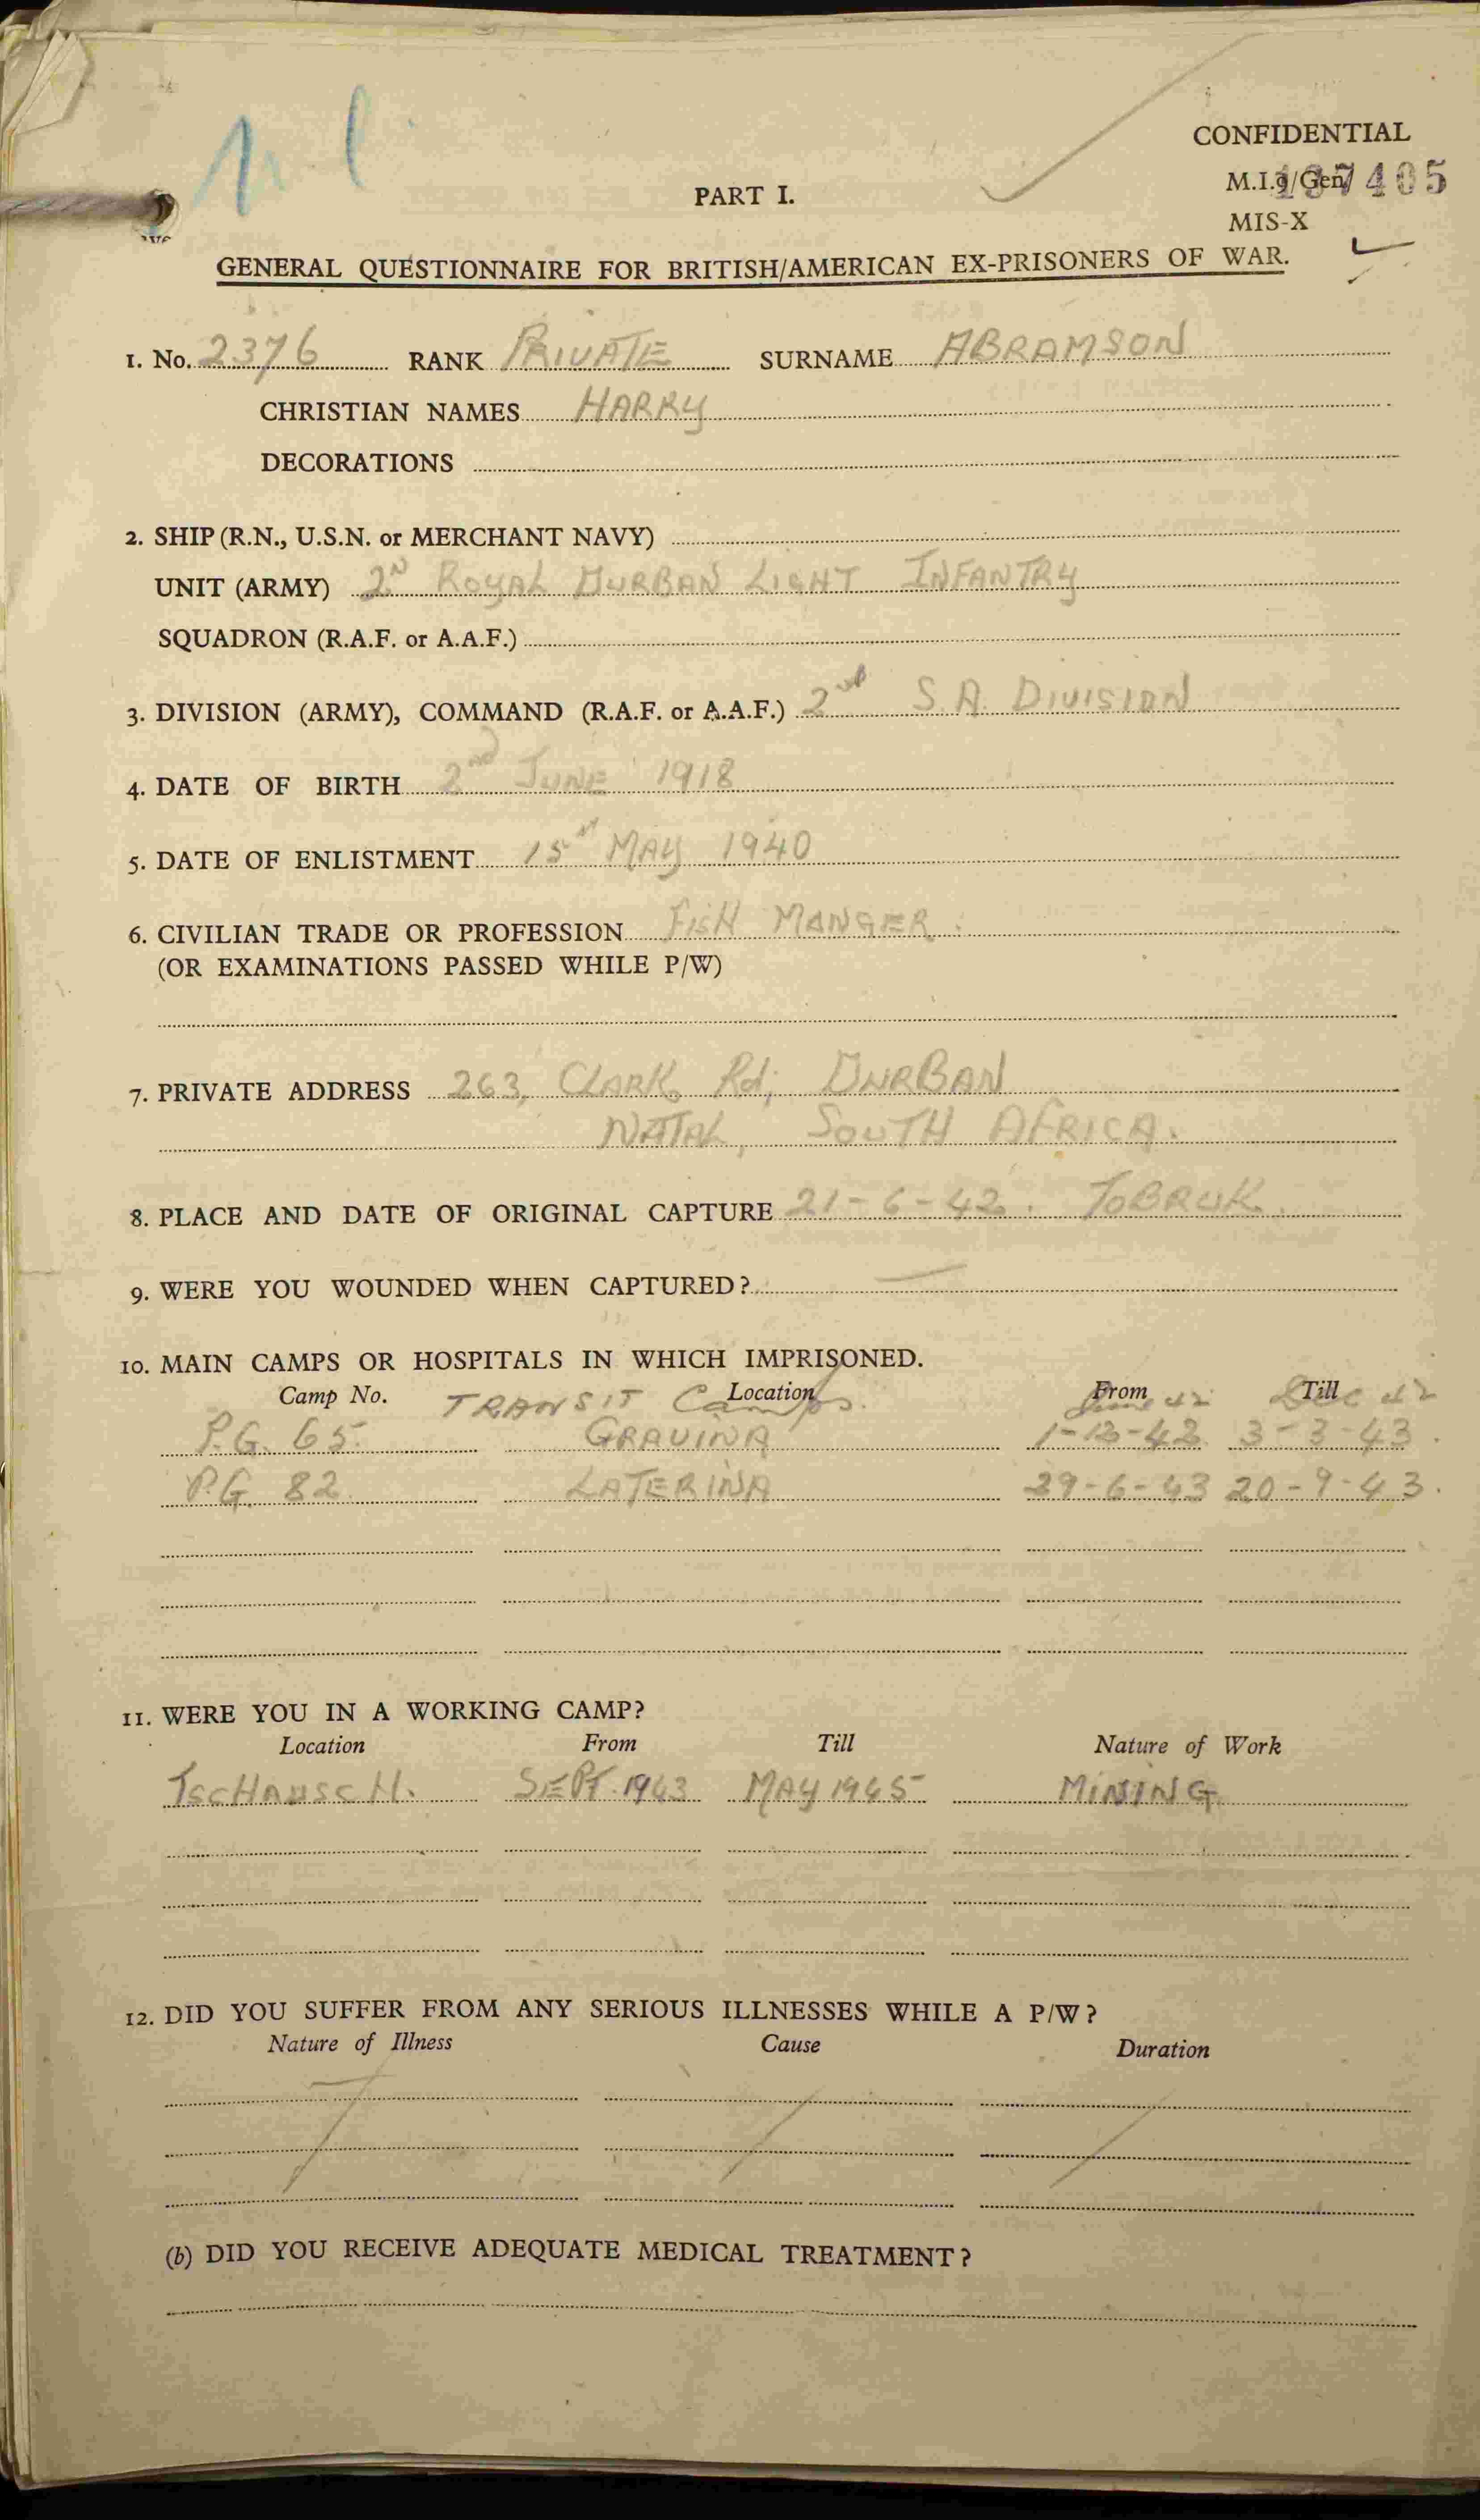 CONFIDENTIAL
M.I.9/Gen/ 137405
MIS-X
PART I.
GENERAL QUESTIONNAIRE FOR BRITISH/AMERICAN EX-PRISONERS OF WAR.
1. No. 2376 RANK PRIVATE SURNAME ABRAMSON
CHRISTIAN NAMES HARRY
DECORATIONS
2. SHIP (R.N., U.S.N. or MERCHANT NAVY)
UNIT (ARMY) 2N ROYAL DURBAN LIGHT INFANTRY
SQUADRON (R.A.F. or A.A.F.)
3. DIVISION (ARMY), COMMAND (R.A.F. or A.A.F.) 2nd S.A. DIVISION
4. DATE OF BIRTH 2nd JUNE 1918
5. DATE OF ENLISTMENT 15 MAY 1940
6. CIVILIAN TRADE OR PROFESSION FISH MANGER.
(OR EXAMINATIONS PASSED WHILE P/W)
7. PRIVATE ADDRESS 263, CLARK Rd, DURBAN
NATAL, SOUTH AFRICA.
8. PLACE AND DATE OF ORIGINAL CAPTURE 21-6-42. TOBRUK.
9. WERE YOU WOUNDED WHEN CAPTURED? —
10. MAIN CAMPS OR HOSPITALS IN WHICH IMPRISONED.
Camp No. Location From Till
TRANSIT Camps. June 42 Dec 42
P.G. 65. GRAVINA 1-12-42 3-3-43.
P.G. 82. LATERINA 29-6-43 20-9-43.
11. WERE YOU IN A WORKING CAMP?
Location From Till Nature of Work
TSCHAUSCH. SEPT. 1943 MAY 1945 MINING
12. DID YOU SUFFER FROM ANY SERIOUS ILLNESSES WHILE A P/W?
Nature of Illness Cause Duration
(b) DID YOU RECEIVE ADEQUATE MEDICAL TREATMENT?